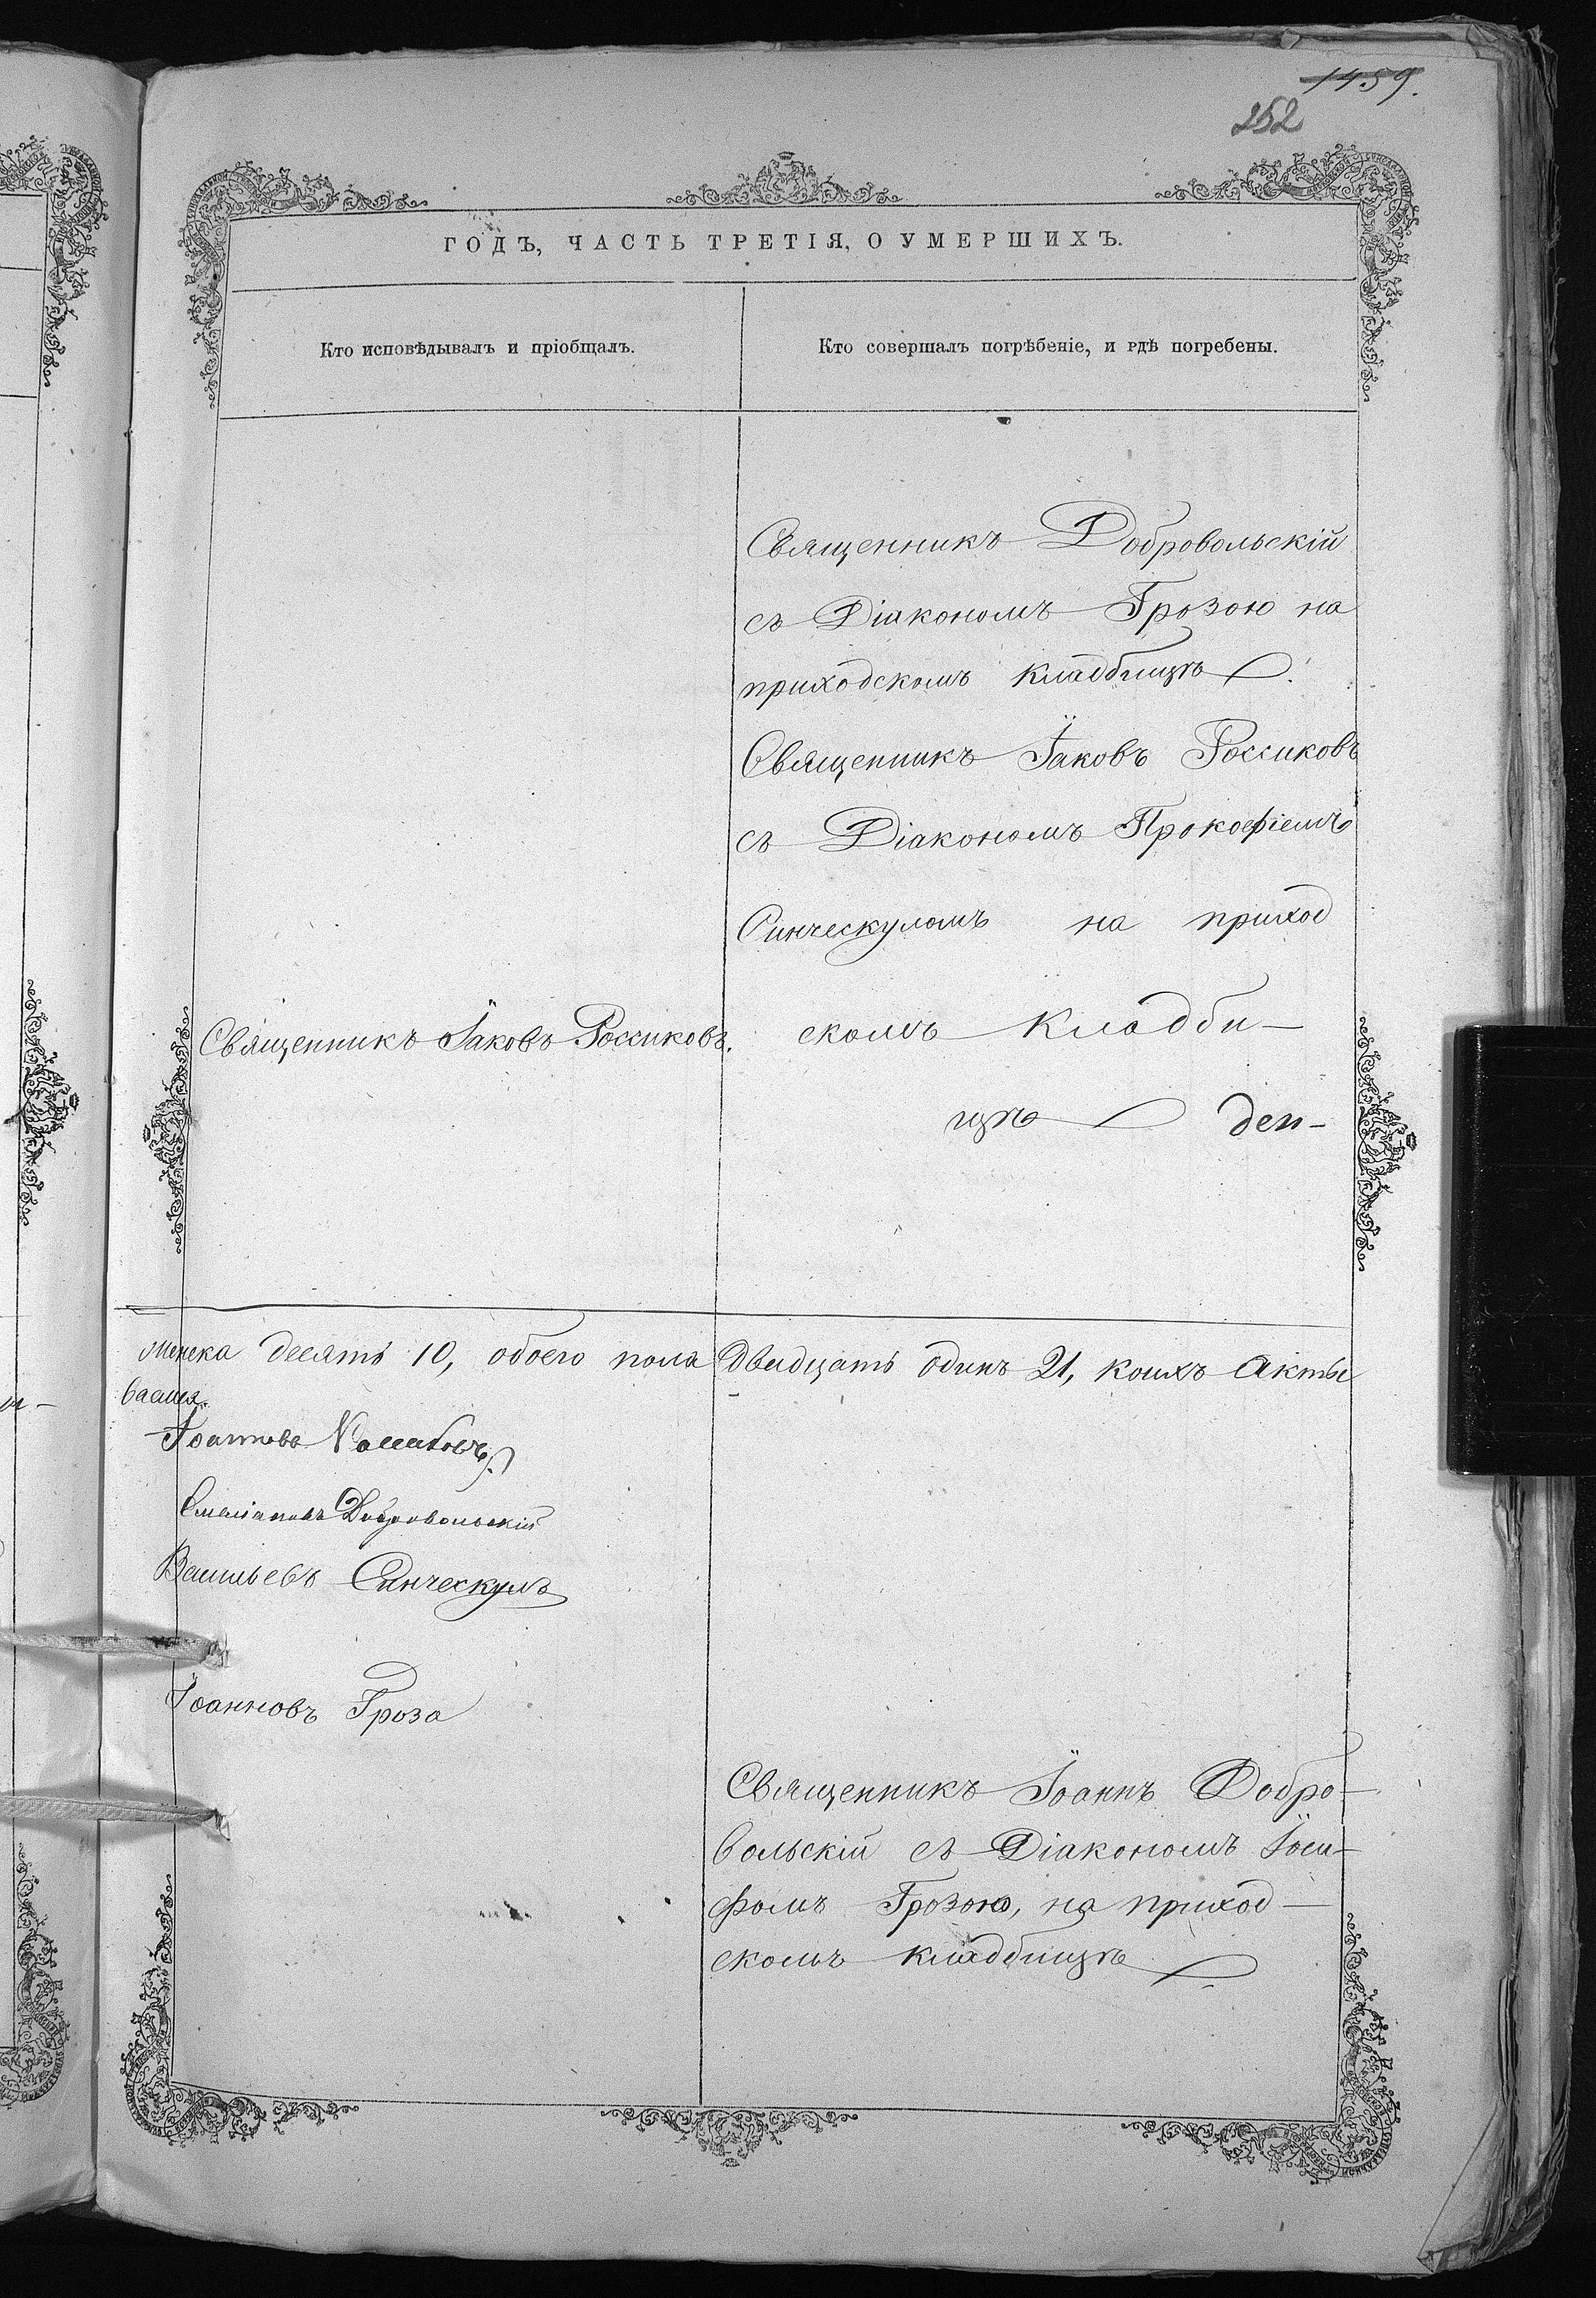 1459.
252
ГОДЪ, ЧАСТЬ ТРЕТІЯ, О УМЕРШИХЪ.
Кто исповѣдывалъ и пріобщалъ.
Кто совершалъ погрѣбеніе, и гдѣ погребены.
Священникъ Добровольскій
съ Діакономъ Грозою на
приходскомъ кладбищѣ.
Священникъ Іаковъ Россиковъ
съ Діакономъ Прокофіемъ
Синческуломъ на приход
скомъ кладби-
Священникъ Іаковъ Россиковъ.
щѣ ден-
женска десять 10, обоего пола двадцать одинъ 21, коихъ акты
Іоанновъ
Емеліановъ Добровольскій
Васильевъ Синческулъ
Іоанновъ Гроза
Священникъ Іоаннъ Добро-
вольскій съ Діакономъ Іоси-
фомъ Грозою, на приход-
скомъ кладбищѣ